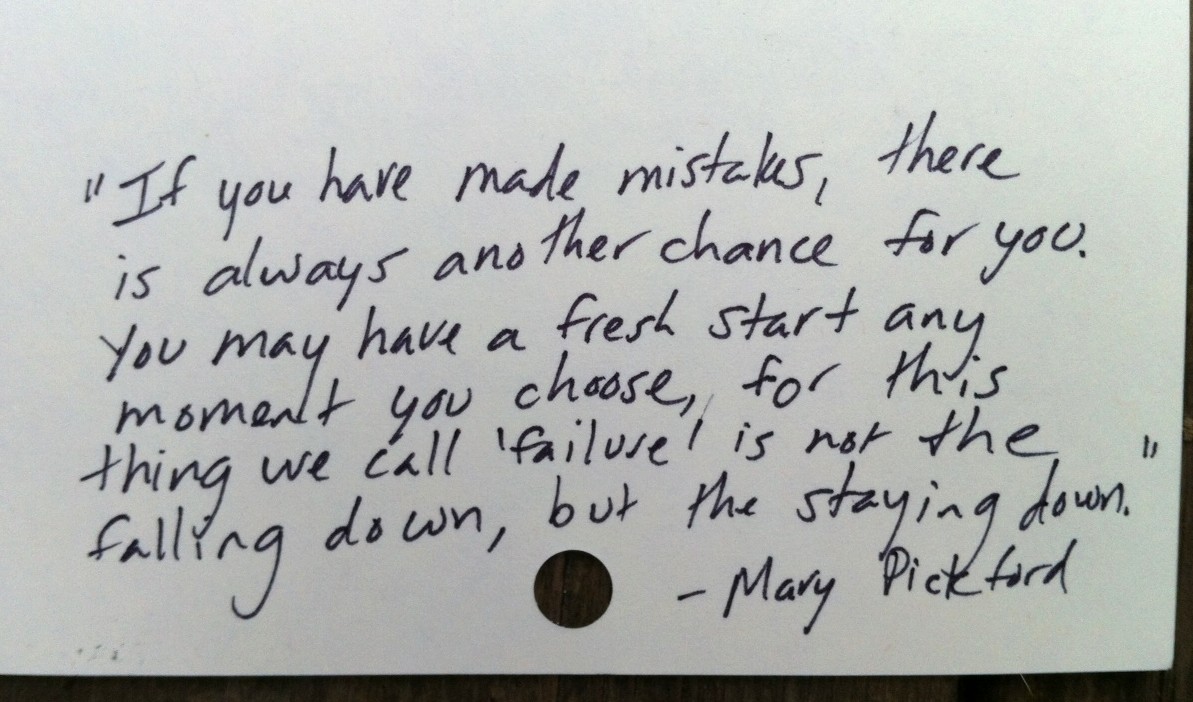 "If you have made mistakes, there
is always another chance for you.
You may have a fresh start any
moment you choose, for this
thing we call 'failure' is not the
falling down, but the staying down."
- Mary Pickford